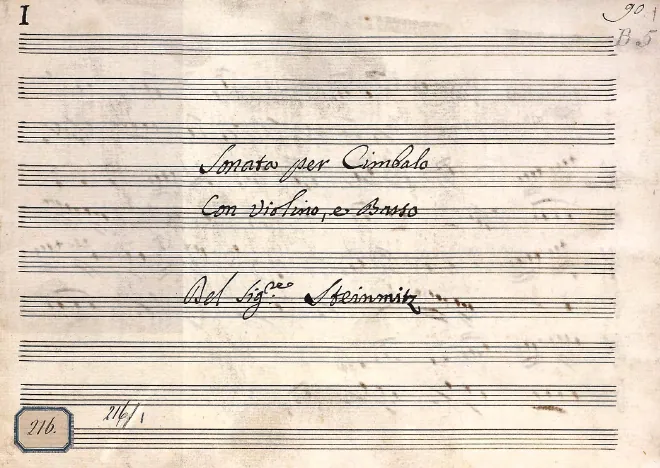 I
90.1
B 5
Sonata per Cimbalo
Con Violino, e Basso
Del Sig.re Steinmitz
216/1
216.